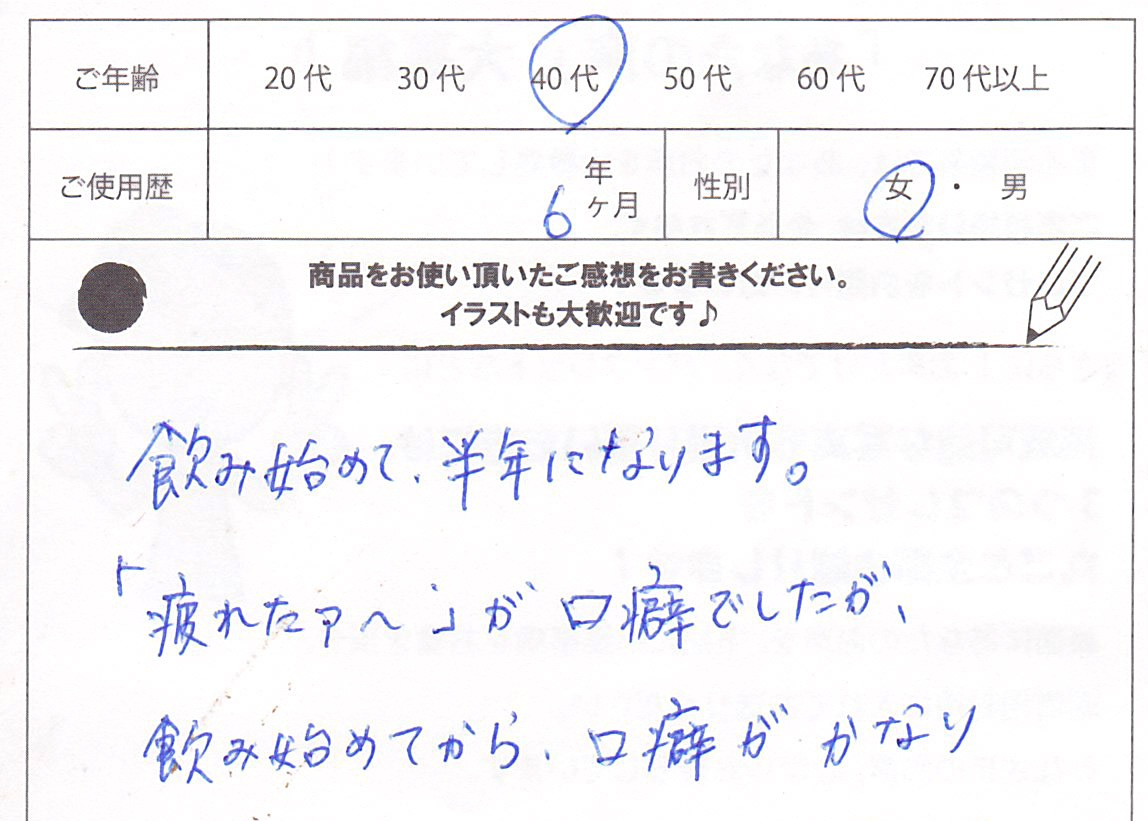 ご年齢 20代 30代 40代 50代 60代 70代以上
ご使用歴 6 年 ヶ月 性別 女 ・ 男
商品をお使い頂いたご感想をお書きください。
イラストも大歓迎です♪
飲み始めて、半年になります。
「疲れたァ〜」が口癖でしたが、
飲み始めてから、口癖がかなり